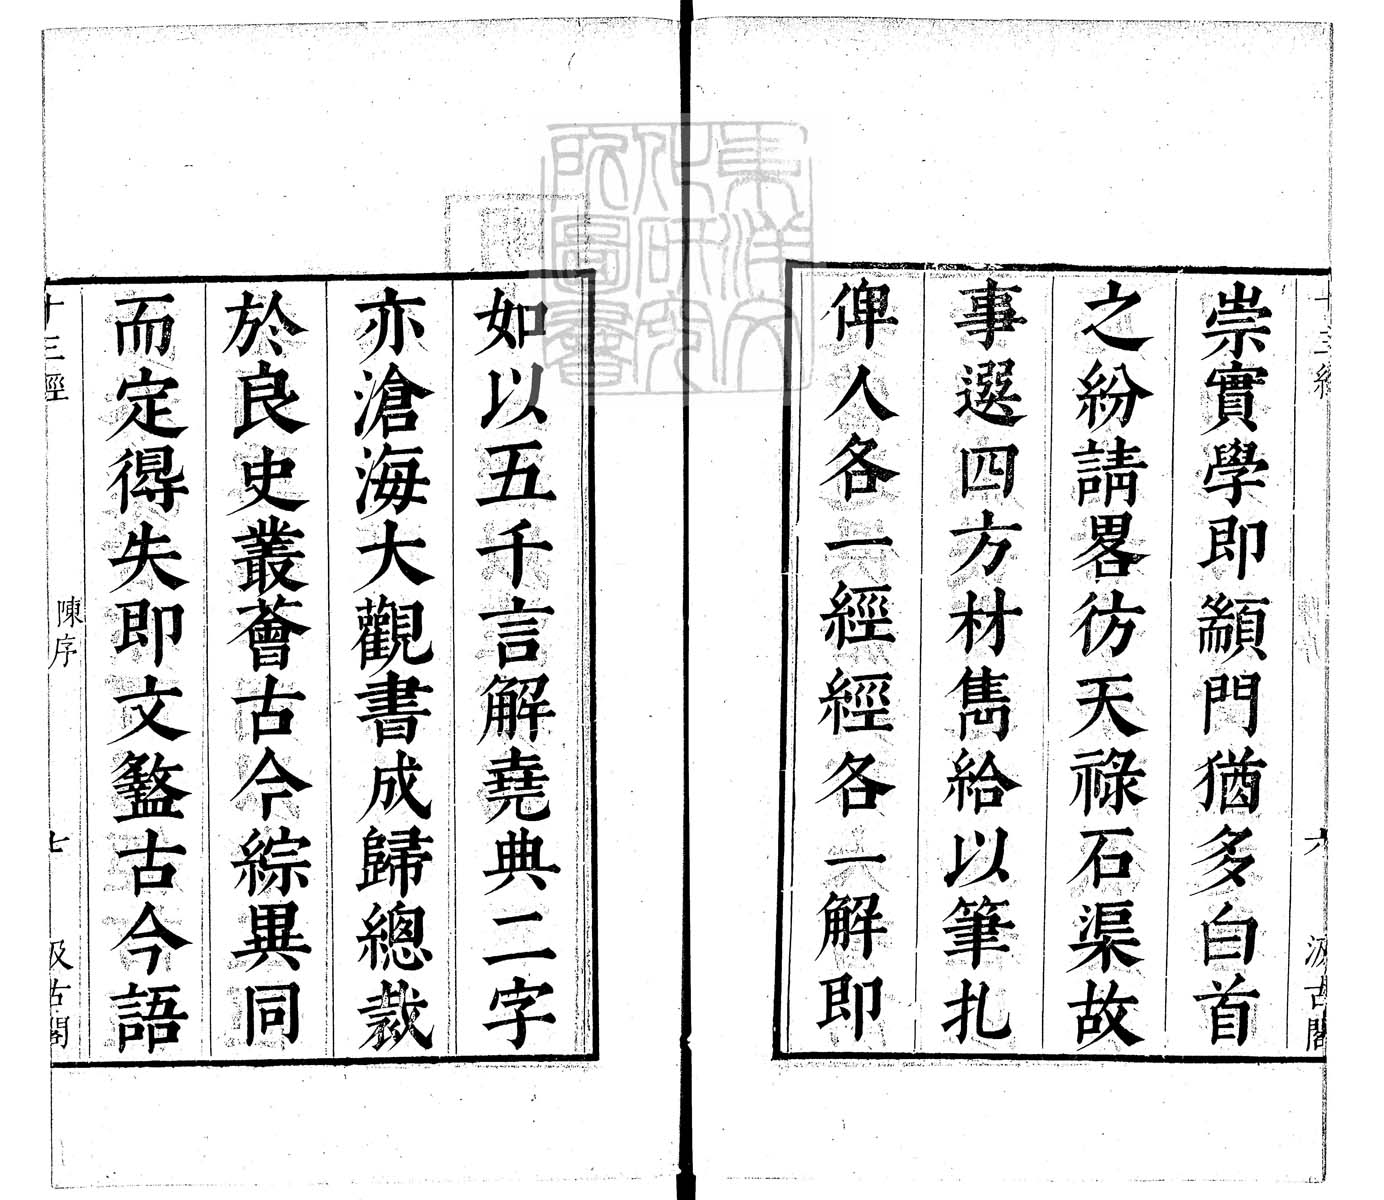 崇實學即顓門猶多白首
之紛請畧彷天祿石渠故
事選四方材雋給以筆札
俾人各一經經各一解即
如以五千言解堯典二字
亦滄海大觀書成歸總裁
於良史叢薈古今綜異同
而定得失即文盩古今語
十三經
陳序
七
汲古閣
十三經
六
汲古閣
東洋文
化研究
所圖書